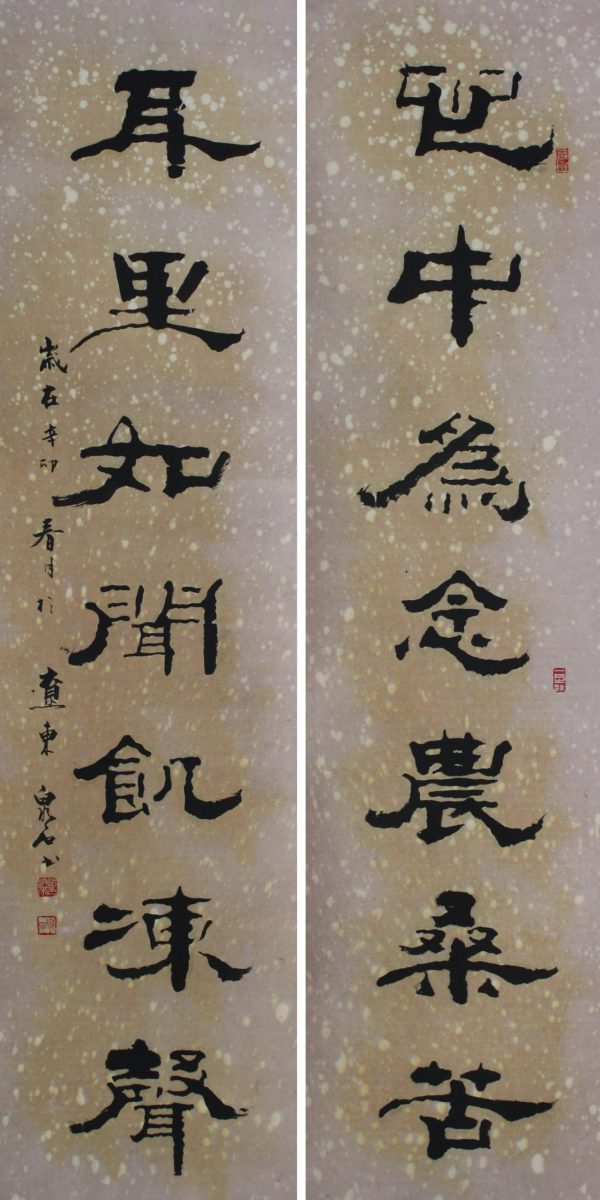 心中為念農桑苦
耳里如聞飢凍聲
歲在辛卯春月於遼東泉石书